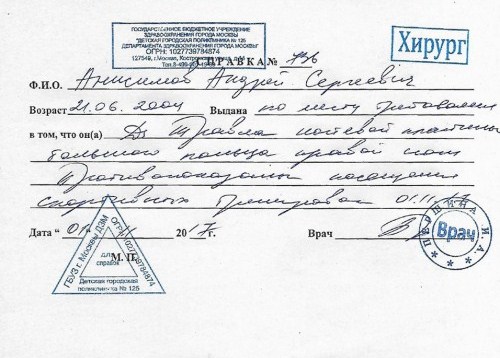 ГОСУДАРСТВЕННОЕ БЮДЖЕТНОЕ УЧРЕЖДЕНИЕ
ЗДРАВООХРАНЕНИЯ ГОРОДА МОСКВЫ
"ДЕТСКАЯ ГОРОДСКАЯ ПОЛИКЛИНИКА № 125
ДЕПАРТАМЕНТА ЗДРАВООХРАНЕНИЯ ГОРОДА МОСКВЫ"
ОГРН: 1027739784874
127549, г.Москва,
Хирург
СПРАВКА № 736
Ф.И.О. Анисимов Андрей Сергеевич
Возраст 21.06.2004 Выдана по месту требования
в том, что он(а) Ds Травма ногтевой пластины
большого пальца правой
Противопоказаны посещения
спортивных тренировок 01.11.17
Дата "01" 11 2017г. Врач
ПЕРШИНА И.А.
Врач
М.П.
ГБУЗ г. Москвы ДЗМ
ОГРН 1027739784874
для
справок
Детская городская
поликлиника № 125